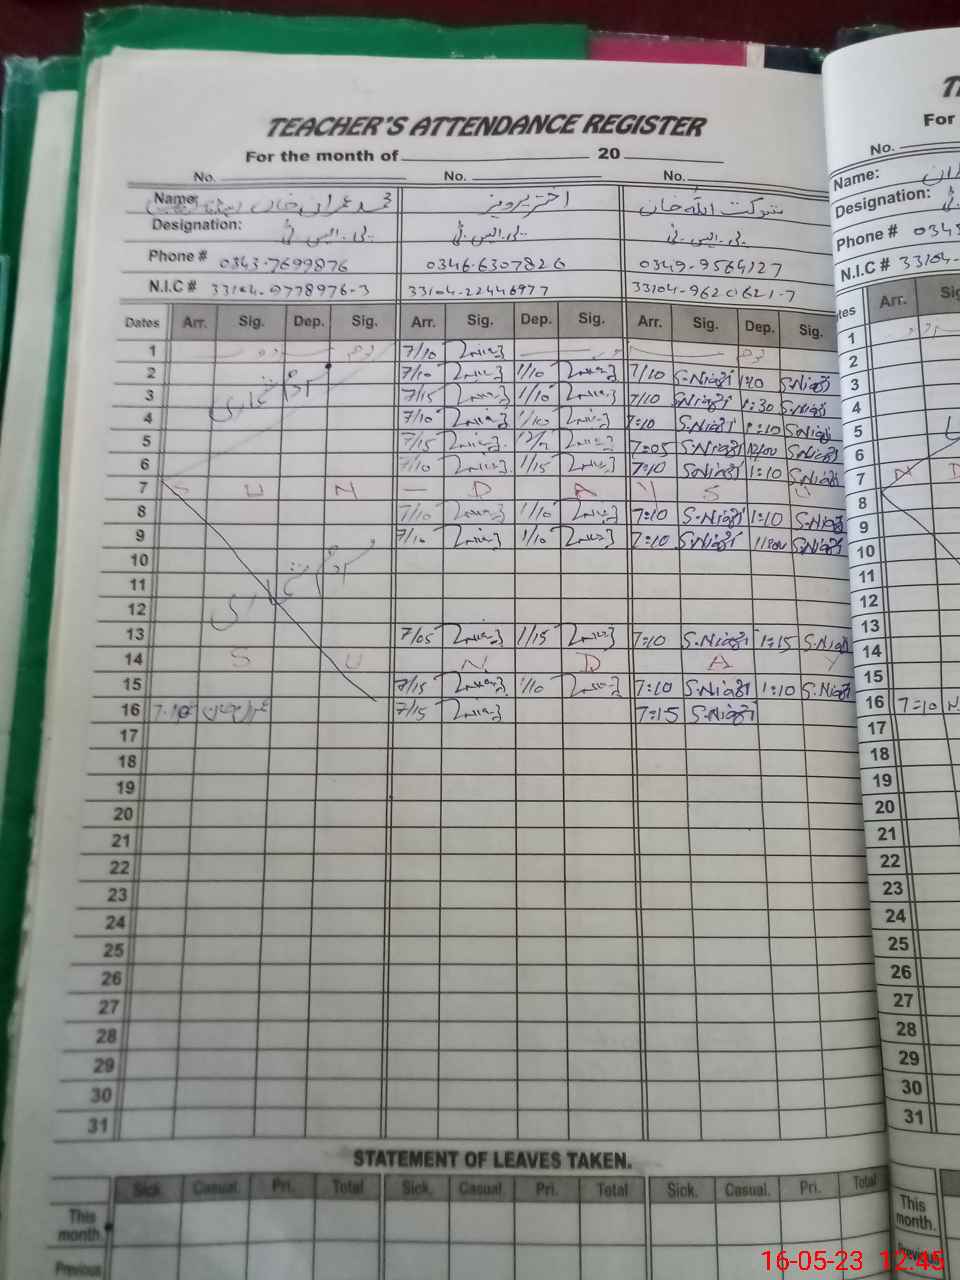 TEACHER'S ATTENDANCE REGISTER
For the month of 20
No. No. No.
Name: محمد عمران خان اختر پرویز شوکت اللہ خان
Designation: پی.ایس.ٹی پی.ایس.ٹی پی.ایس.ٹی
Phone # 0343-7699876 0346-6307826 0349-9564127
N.I.C # 33104-9778976-3 33104-22446977 33104-9620621-7
Dates Arr. Sig. Dep. Sig. Arr. Sig. Dep. Sig. Arr. Sig. Dep. Sig.
1 7/10
2 7/10 1/10 7/10 S.Niazi 1:10 S.Niazi
3 7/15 1/10 7/10 S.Niazi 1:30 S.Niazi
4 7/10 1/10 7:10 S.Niazi 1:10 S.Niazi
5 7/15 7:05 S.Niazi S.Niazi
6 7/10 1/15 7:10 S.Niazi 1:10 S.Niazi
7 S U N - D A Y S U
8 7/10 1/10 7:10 S.Niazi 1:10 S.Niazi
9 7/10 1/10 7:10 S.Niazi S.Niazi
10
11
12
13 7/05 1/15 7:10 S.Niazi 1:15 S.Niazi
14 S U N D A Y
15 7/15 1/10 7:10 S.Niazi 1:10 S.Niazi
16 7:10 7/15 7:15 S.Niazi
17
18
19
20
21
22
23
24
25
26
27
28
29
30
31
STATEMENT OF LEAVES TAKEN.
Sick. Casual. Pri. Total Sick. Casual. Pri. Total Sick. Casual. Pri. Total
This month.
Previous
For
No.
Name:
Designation:
Phone #
N.I.C # 33104-
Arr.
1
2
3
4
5
6
7 N D
8
9
10
11
12
13
14
15
16 7:10
17
18
19
20
21
22
23
24
25
26
27
28
29
30
31
This month.
Previous
16-05-23 12:45